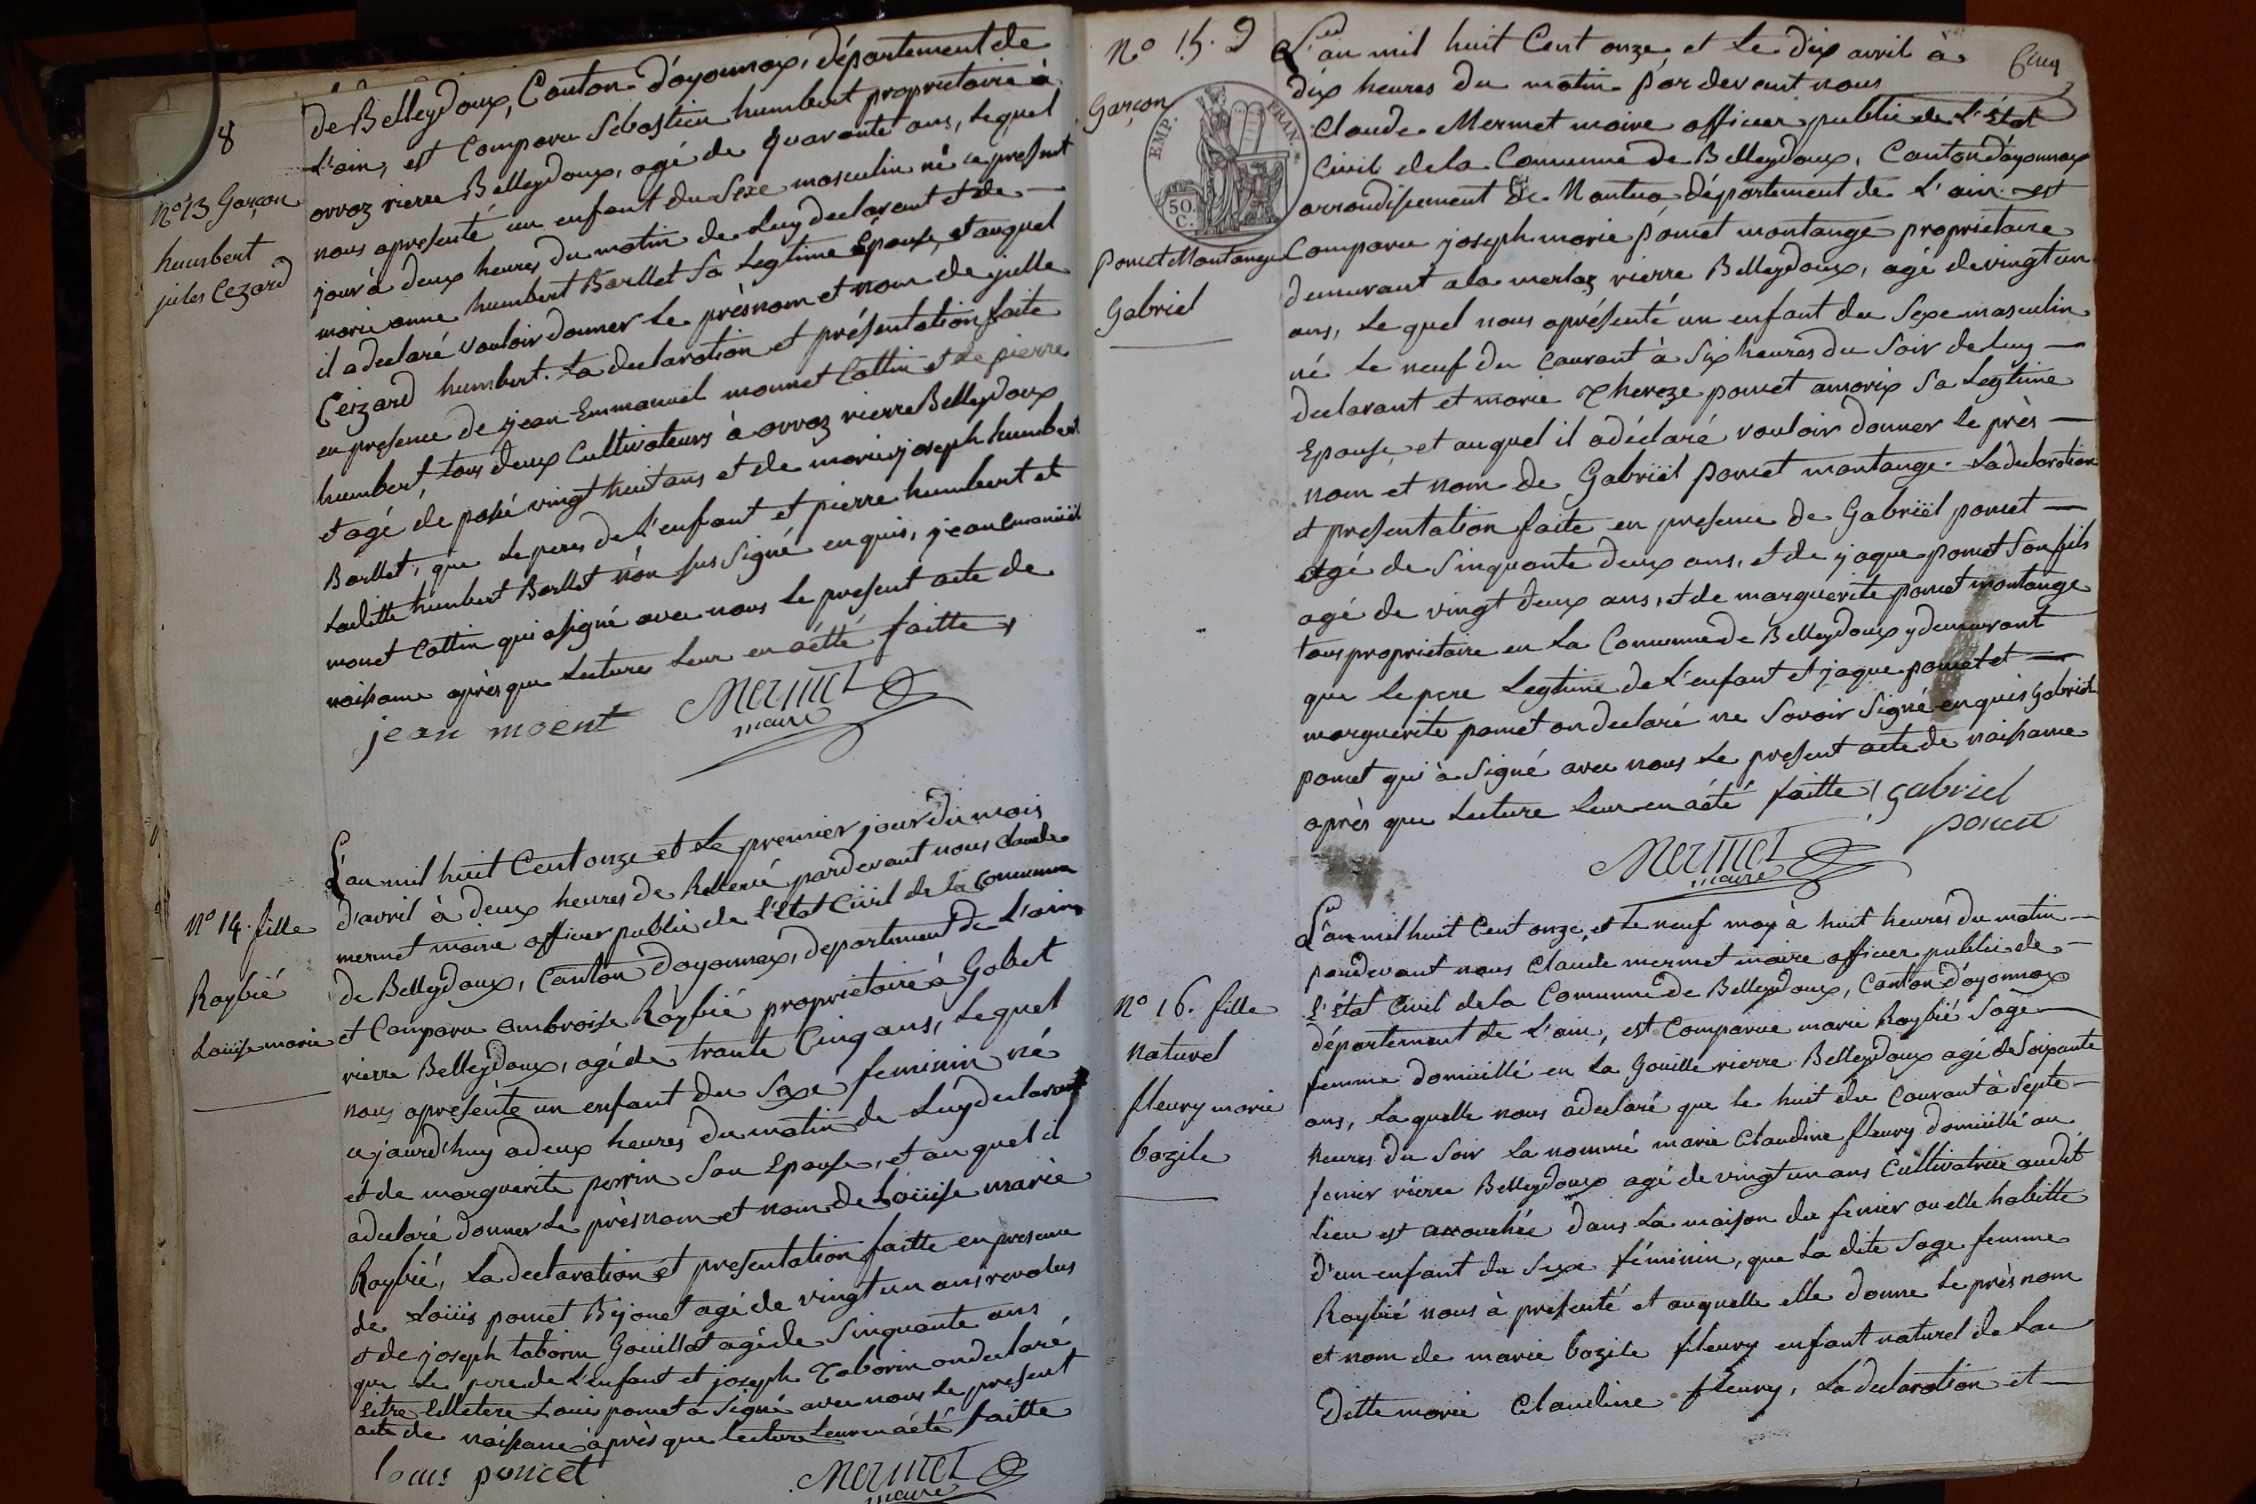 8
de Belleydoux, Canton d'ayonnax, département de
L'ain, est Comparu Sebastien humbert proprietaire à
orvaz rierre Belleydoux, agé de quarante ans, Lequel
nous apresenté un enfant du Sexe masculin né ce present
jour à deux heures du matin de Luy declarant et de —
marie anne humbert Barllet Sa Legtime Epouse, et auquel
il adeclaré vouloir donner Le prèsnom et nom de julle
Ceizard humbert. La declaration et présentation faite
en presence de jean Emmanuël monnet Cottin et de pierre
humbert, tous deux Cultivateurs à orvaz rierre Belleydoux
et agé de passé vingt huit ans et de marie joseph humbert
Barllet, que Le pere de L'enfant et pierre humbert et
Laditte humbert Barllet non sus Signé enquis, jean Emanuël
monet Cottin qui asigné avec nous Le present acte de
naissance après que Lectures Leur en aétté faitte
jean moent
Mermet
maire
N° 13 Garçon
humbert
jules Cezard
L'an mil huit Cent onze et Le premier jour du mois
d'avril à deux heures de Rellevé pardevant nous claude
mermet maire officier public de L'Etat Civil de la Commune
de Belleydoux, Canton d'oyonnax, departement de L'ain
et Comparu ambroise Raybié proprietaire à Gobet
rierre Belleydoux, agé de trante Cinq ans, Lequel
nous apresenté un enfant du Sexe feminin né
ce jaurd'huy adeux heures du matin de Luy declarant
et de marguerite perrin Son Epouse, et auquel il
adeclaré donner Le prèsnom et nom de Loüise marie
Raybié, La declaration et presentation faitte en presence
de Loüis poncet Bijonet agé de vingt un ans revolus
et de joseph taborin Goüillot agé de Sinquante ans
que Le pere de L'enfant et joseph Taborin ondeclaré
Litre Lelletere Louis poncet a Signé avec nous Le present
acte de naissance après que lecture Leur en aété faitte
Louis poncet
Mermet
maire
N° 14. fille
Raybié
Loüise marie
N° 15. 9
Garçon
EMP. FRAN.
50. C.
poncet Montange
Gabriel
L'an mil huit Cent onze, et Le dix avril à
dix heures du matin par devant nous
Claude Mermet maire officier public de L'état
Civil de la Commune de Belleydoux, Canton d'ayonnax
arrondissement de Nantua département de L'ain est
Comparu joseph marie poncet montange proprietaire
demeurant ala merlaz rierre Belleydoux, agé de vingt un
ans, Lequel nous aprésenté un enfant du Sexe masculin
né Le neuf du Courant à Six heures du Soir de Luy —
declarant et marie Thereze poncet amorix Sa Legtime
Epouse, et auquel il adéclaré vouloir donner le près —
nom et nom de Gabriël poncet montange. La declaration
et presentation faite en presence de Gabriël poncet —
agé de Sinquante deux ans, et de jaque poncet Son fils
agé de vingt deux ans, et de marguerite poncet montange
tous proprietaire en La Commune de Belleydoux y demeurant
que Le pere Legtime de L'enfant et jaque poncet et —
marguerite poncet on declaré ne Savoir Signé enquis Gabriël
poncet qui à Signé avec nous Le present acte de naissance
après que Lecture Leur en aété faitte, gabriel
poncet
Mermet
maire
L'an mil huit Cent onze, et Le neuf may à huit heures du matin —
pardevant nous Claude mermet maire officier public de —
L'état Civil de la Commune de Belleydoux, Canton d'ayonnax
département de L'ain, est Comparue marie Raybié Sage —
femme domicillié en La Gouille rierre Belleydoux agé de Soixante
ans, Laquelle nous adeclaré que le huit du Courant à Septe —
heures du Soir La nommé marie Claudine fleury domicillié au
fenier rierre Belleydoux agé de vingt un ans Cultivatrice audit
Lieu est accouchée dans La maison du fenier ou elle habitte
d'un enfant du Sexe féminin, que La dite Sage femme
Raybié nous à presenté et auquelle elle donne Le près nom
et nom de marie bazile fleury enfant naturel de La
Ditte marie Claudine fleury, La declaration et —
N° 16. fille
Naturel
fleury marie
bazile